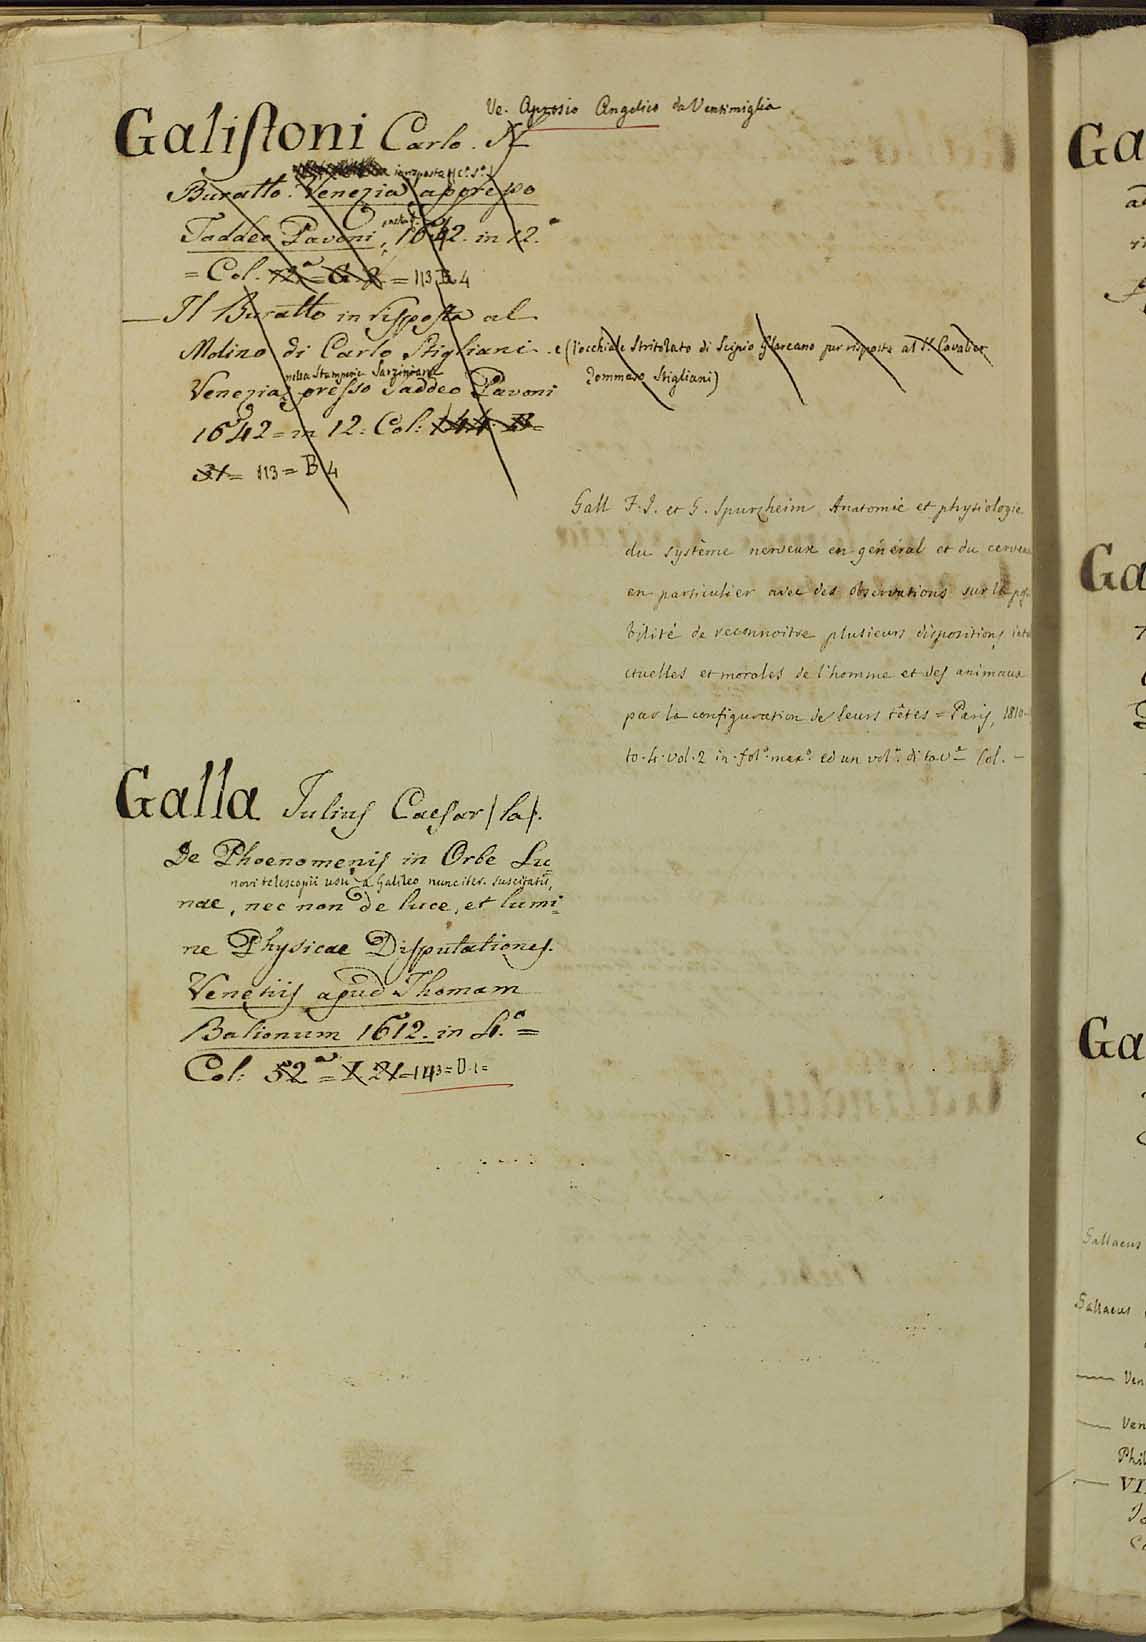 Ve. Aprosio Angelico da Ventimiglia
Galiſtoni Carlo. Il
in risposta
Buratto. Venezia appresso
Taddeo Pavoni, 1642. in 12.°
= Col. 12.a = G. 2 = 113. B. 4
— Il Buratto in risposta al
Molino di Carlo Stigliani. e (l'occhiale Stritolato di Scipio Glareano per risposta al Sr. Cavalier
Tommaso Stigliani)
nella Stamperia Sarziniana
Venezia, presso Taddeo Pavoni
1642 = in 12: Col: 144. B =
31 = 113 = B 4
Gall F. J. et G. Spurzheim, Anatomie et physiologie
du système nerveux en général et du cervea
en particulier avec des observations sur la poſ
bilité de reconnoitre plusieurs dispositions inte
ctuelles et morales de l'homme et des animaux
par la configuration de leurs têtes = Paris, 1810 -
to. 4. vol. 2 in fol.° max.° ed un vol.e di tav.e Col. -
Galla Julius Caesar (la).
De Phoenomenis in Orbe Lu=
novi telescopii usu a Galileo nunc iter. suscitatis,
nae, nec non de luce, et lumi=
ne Physicae Disputationes.
Venetiis apud Thomam
Balionum 1612. in 4.° =
Col: 52.a = I. 21 = 143 = D. 1 =
Ga
Ga
Ga
Gallaeus
Gallaeus
— Ven
— Ven
Phil
— VI